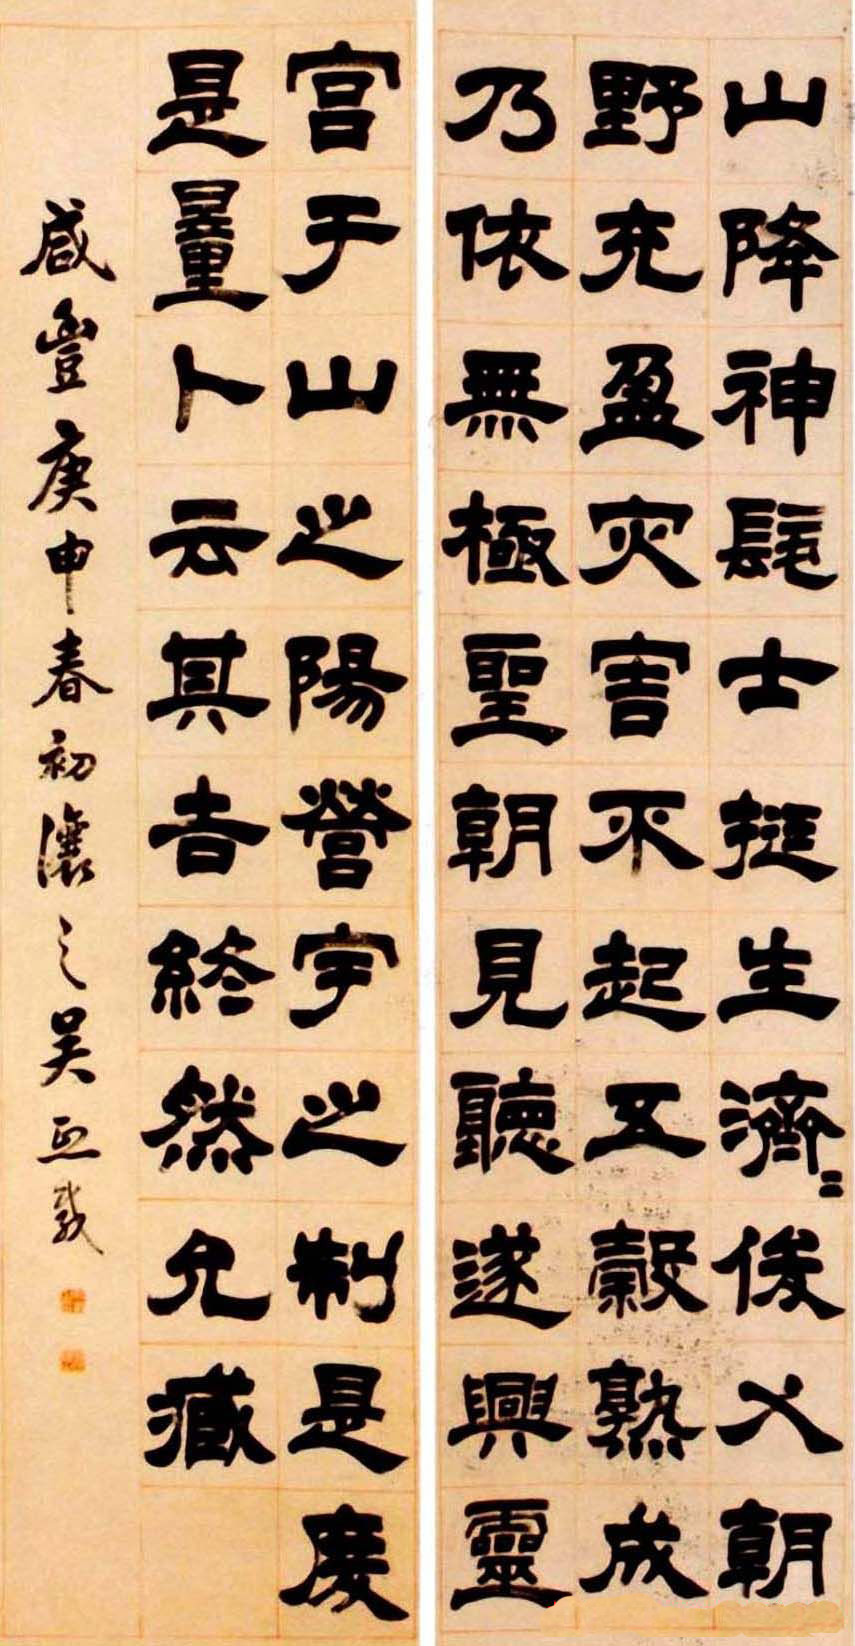 山降神髦士挺生濟〻俊乂朝
野充盈灾害不起五穀熟成
乃依無極聖朝見聽遂興靈
宮于山之陽營宇之制是度
是量卜云其吉終然允臧
咸豐庚申春初讓之吳熙載